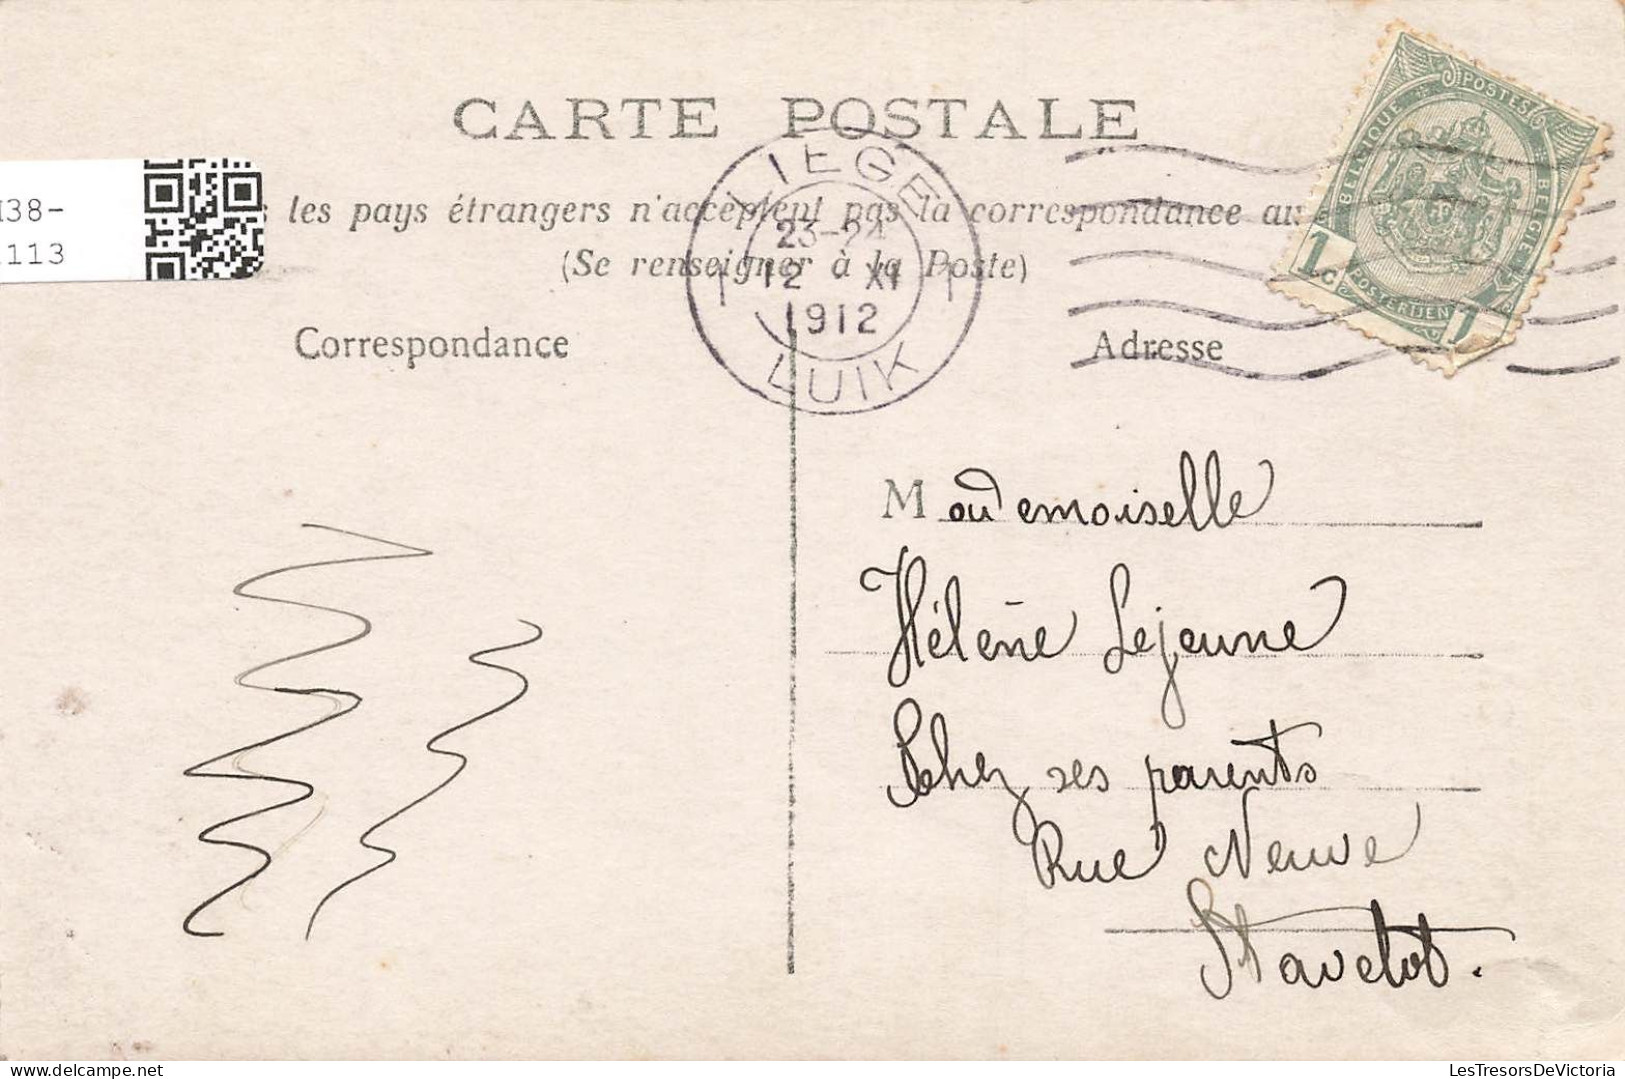 CARTE POSTALE
les pays étrangers n'acceptent pas la correspondance au
(Se renseigner à la Poste)
Correspondance
Adresse
LIEGE
23-24
12 XI
1912
LUIK
BELGIQUE POSTES BELGIË
1c. POSTERIJEN 1
38-
113
Mademoiselle
Hélène Lejeune
Chez ses parents
Rue Neuve
Stavelot.
delcampe.net
LesTresorsDeVictoria